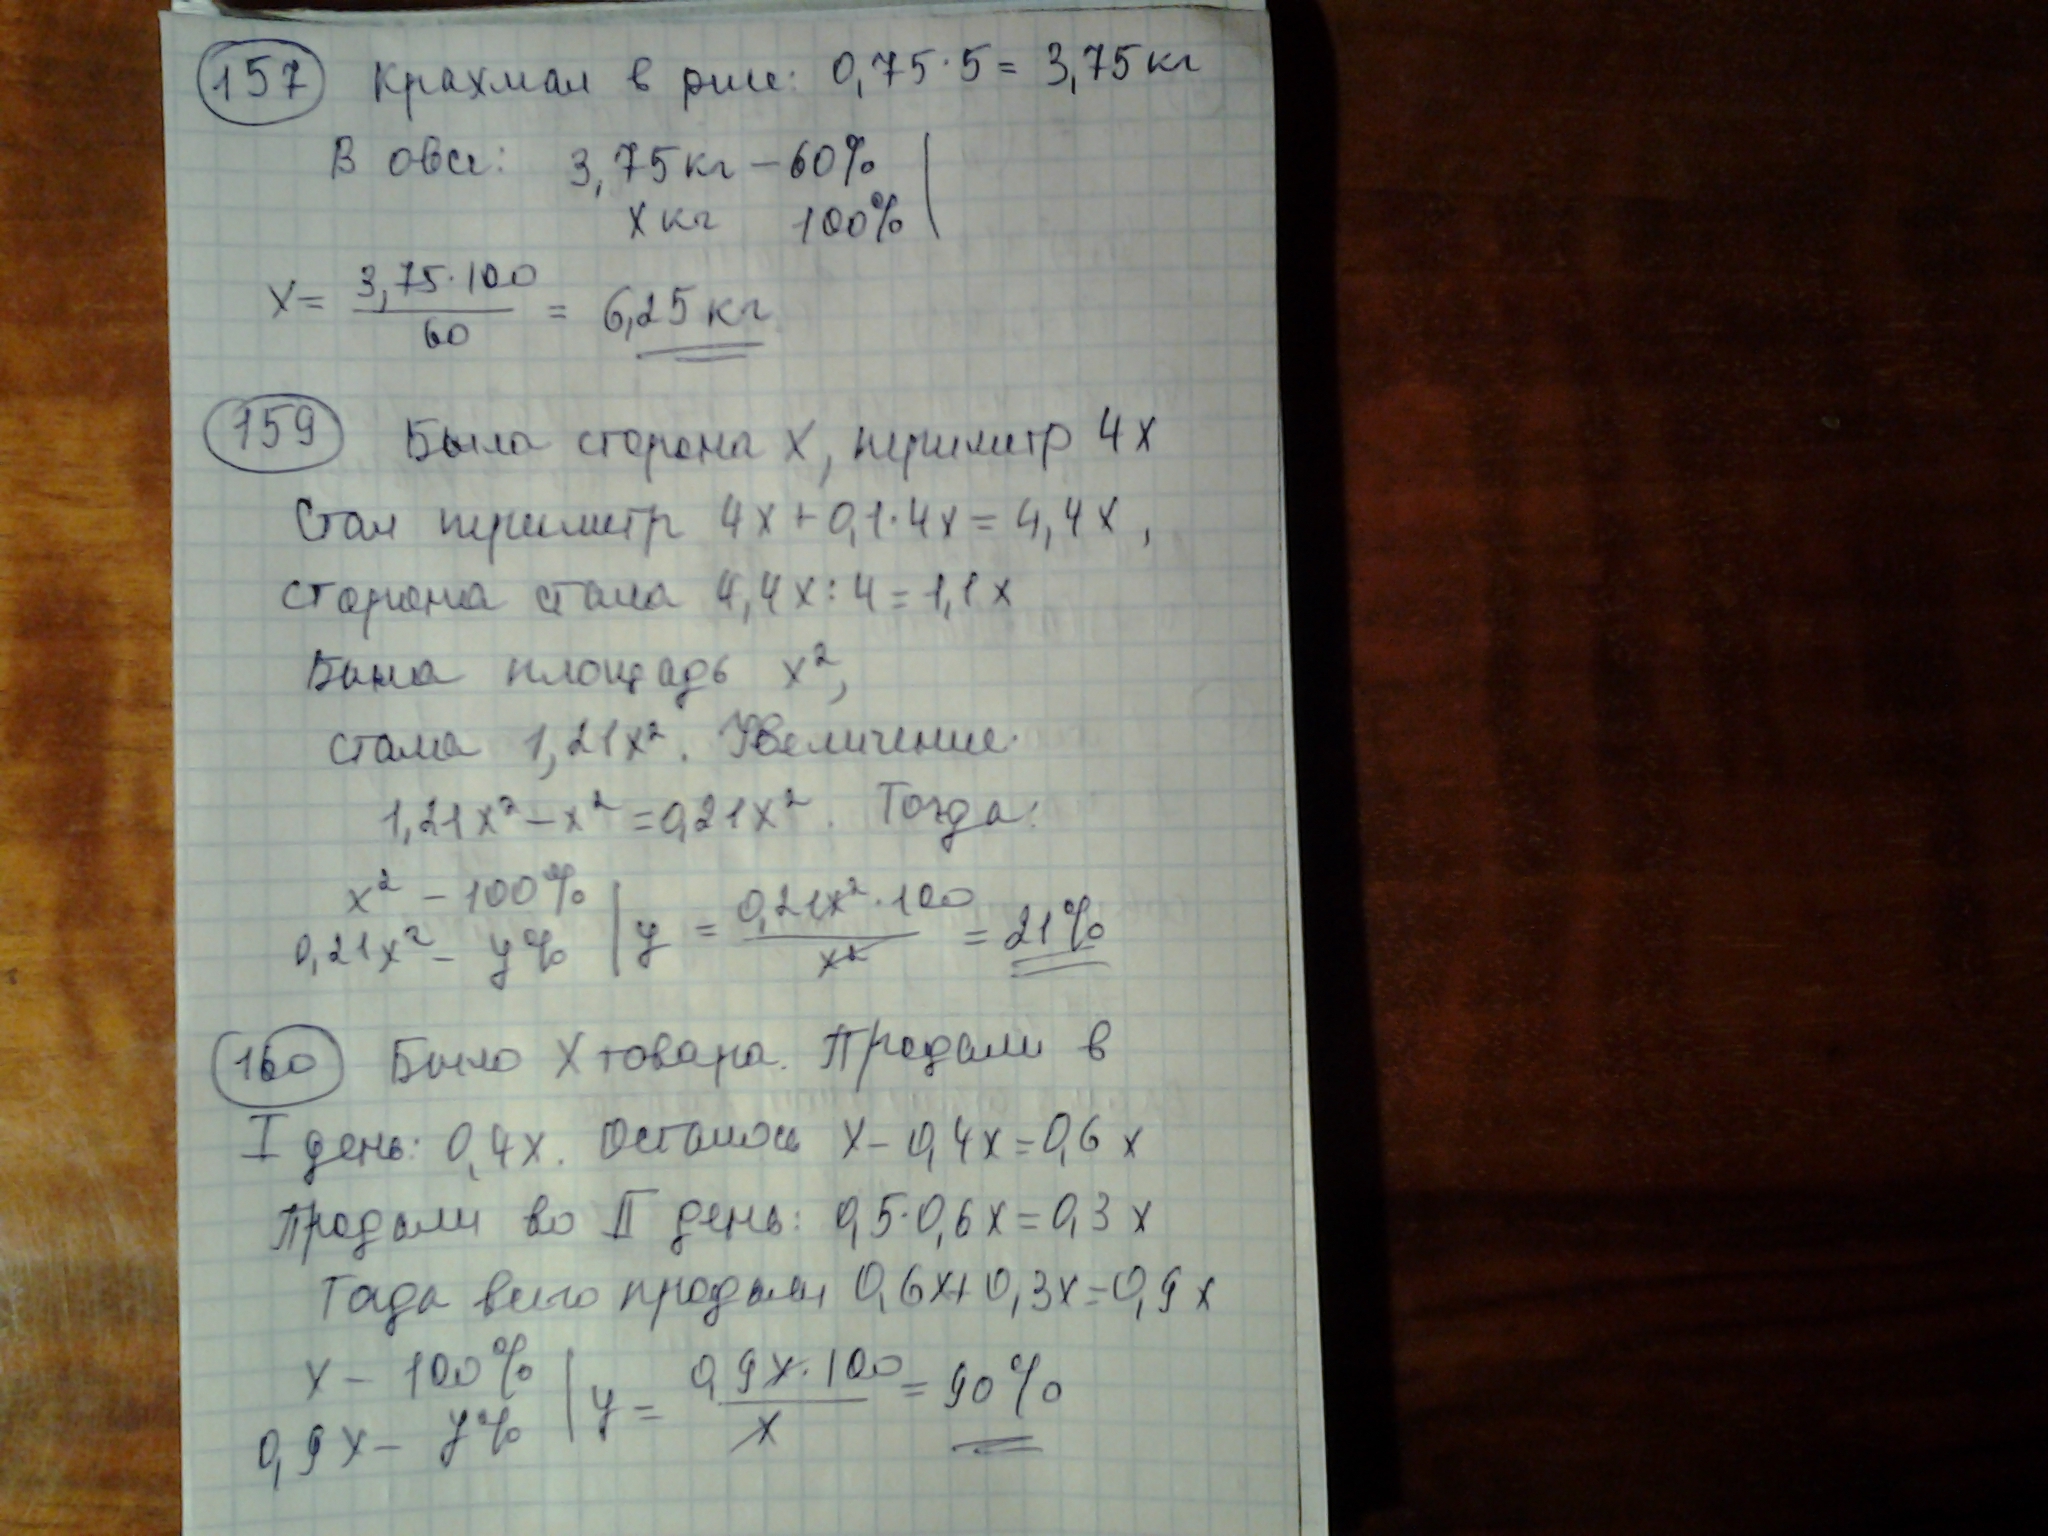 157 Крахмал в рисе: 0,75·5 = 3,75 кг
В овсе: 3,75 кг – 60%
х кг 100%
х = 3,75·100 / 60 = 6,25 кг
159 Была сторона х, периметр 4х
Стал периметр 4х + 0,1·4х = 4,4х,
сторона стала 4,4х : 4 = 1,1х
Была площадь х²,
стала 1,21х². Увеличение:
1,21х² – х² = 0,21х². Тогда:
х² – 100%
0,21х² – у% | у = 0,21х²·100 / х² = 21%
160 Было х товара. Продали в
I день: 0,4х. Осталось х – 0,4х = 0,6х
Продали во II день: 0,5·0,6х = 0,3х
Тогда всего продали 0,6х + 0,3х = 0,9х
х – 100%
0,9х – у% | у = 0,9х·100 / х = 90%